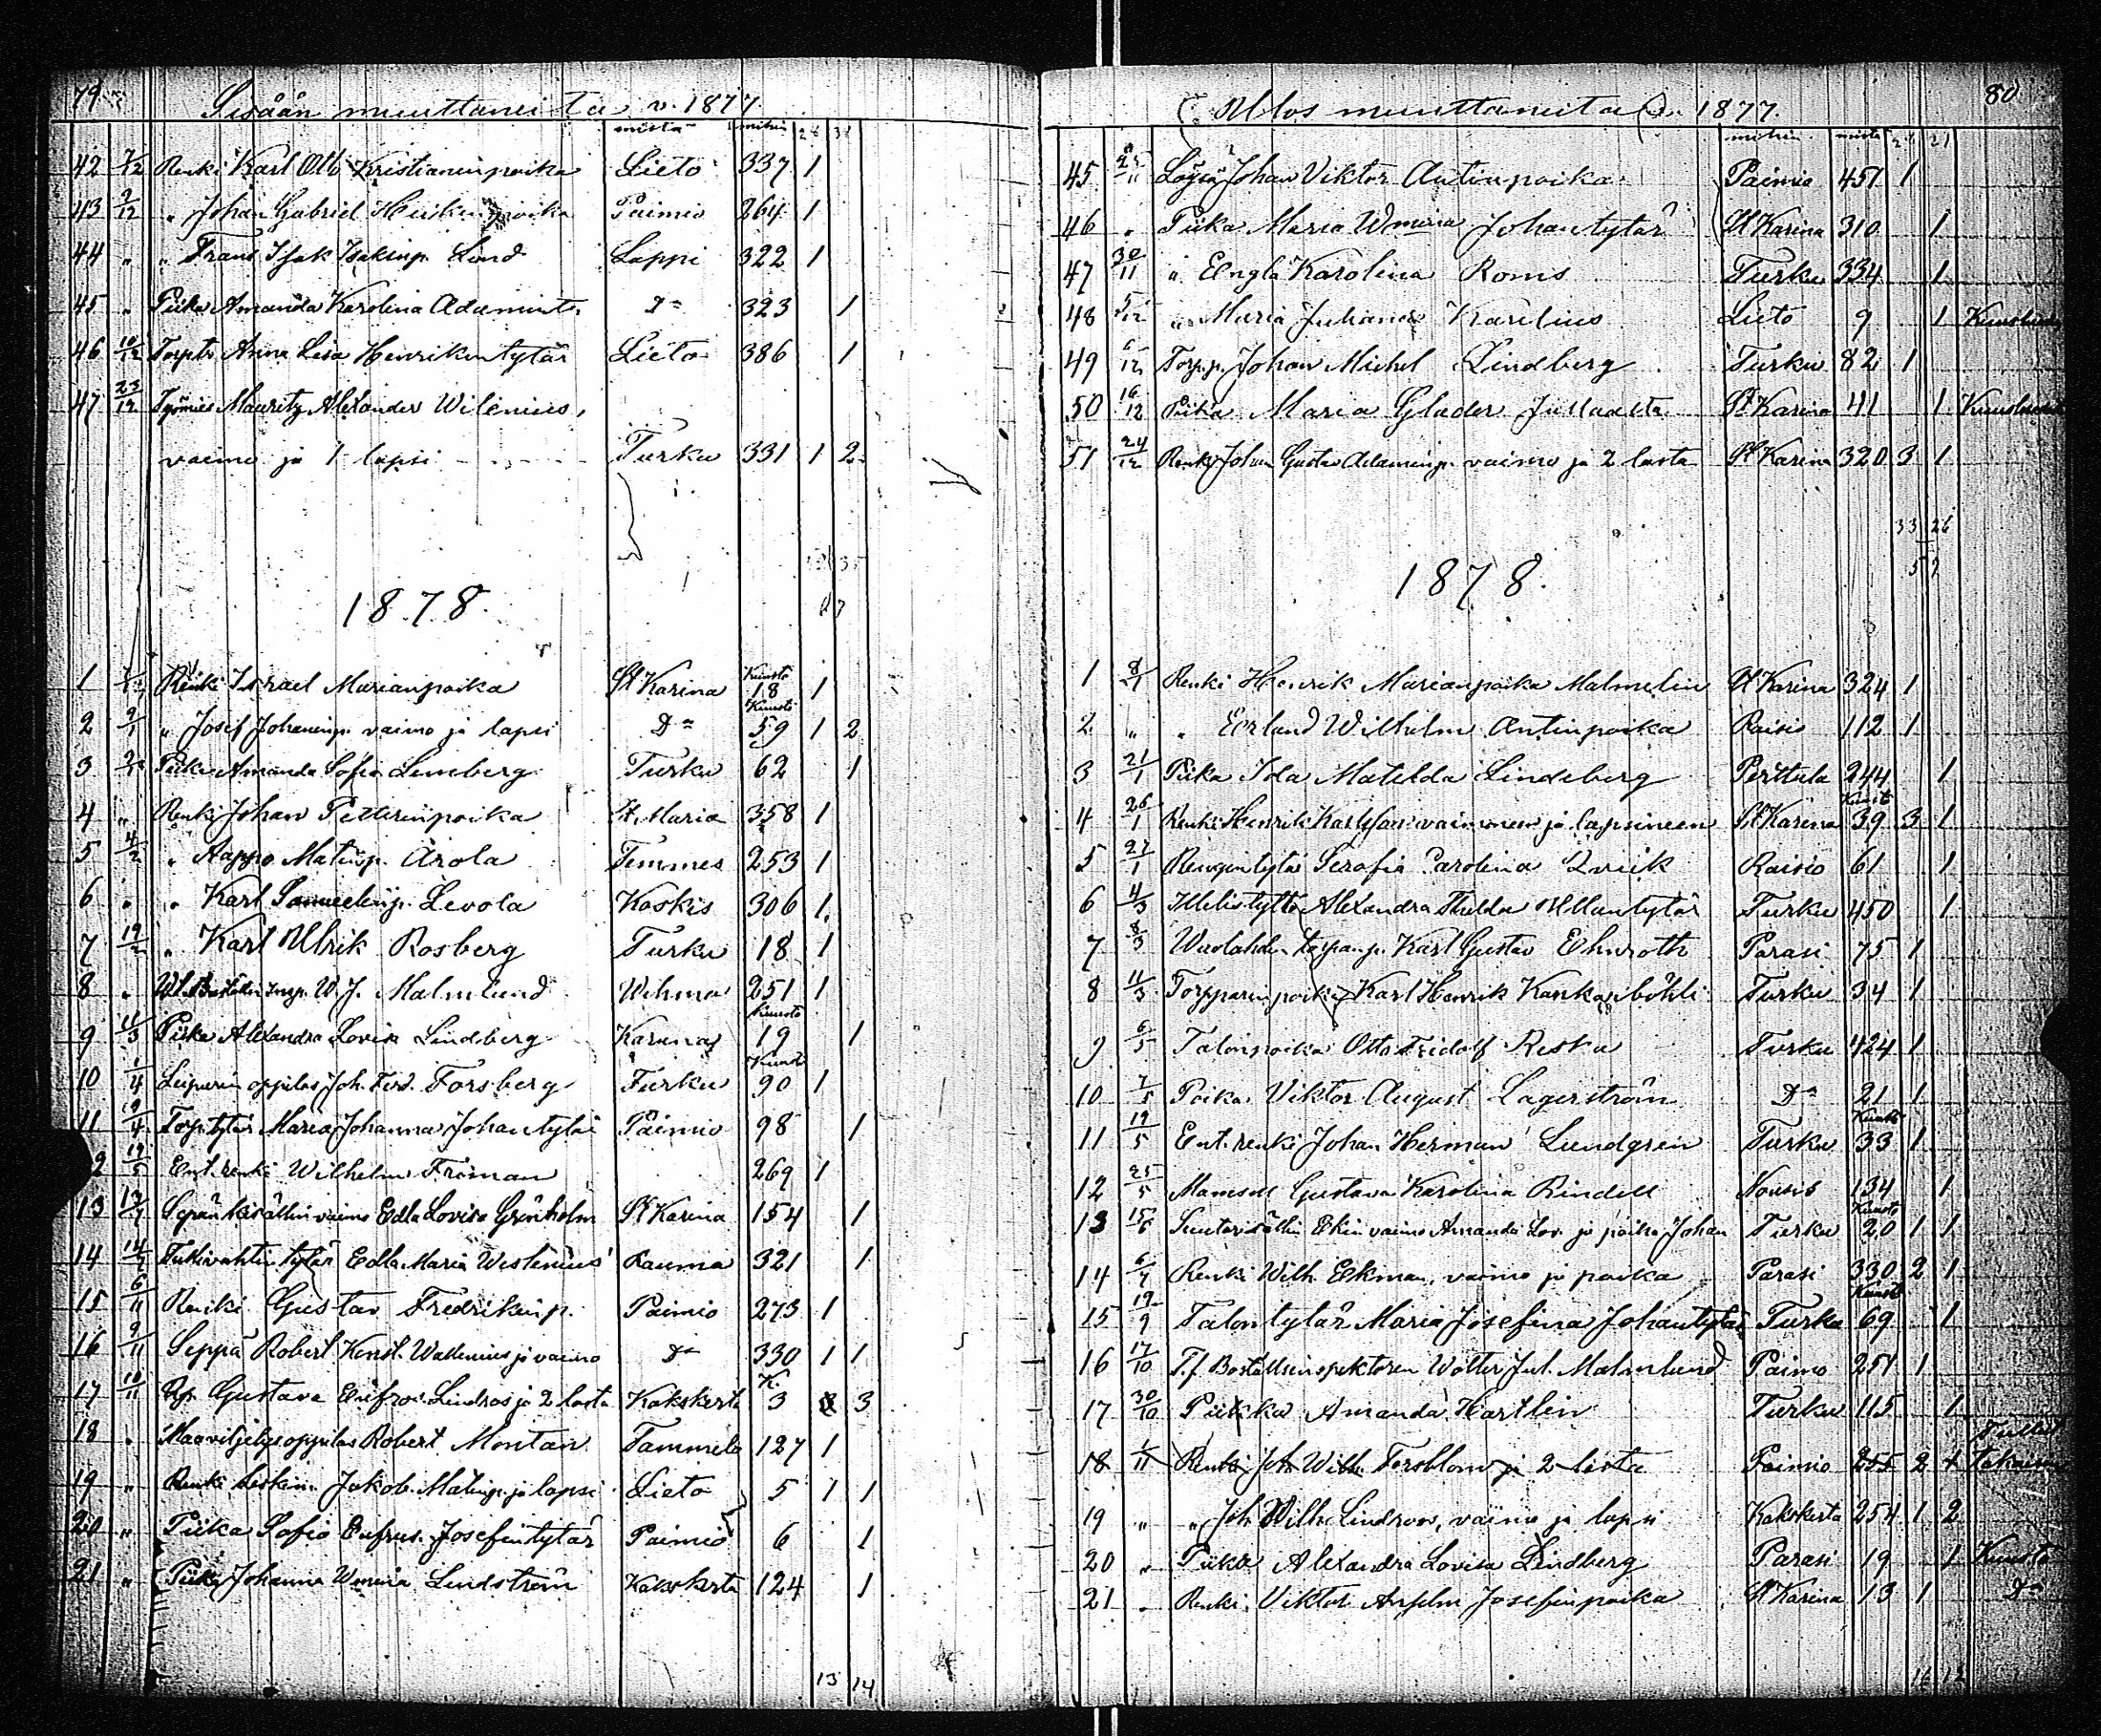 79
Sisään muuttaneista v. 1877
mistä mihin 28 38
42 7/12 Renki Karl Otto Kristianinpoika Lieto 337 1
43 9/12 " Johan Gabriel Heikinpoika Paimio 264 1
44 " " Frans Isak Isakinp. Lind Lappi 322 1
45 " Piika Amanda Karolina Adamint. Do 323 1
46 10/12 Torptr Anna Lisa Henrikintytär Lieto 386 1
47 23/12 Työmies Mauritz Alexander Wilenius,
vaimo ja 1 lapsi Turku 331 1 2
1878.
Kuusto
1 Renki Israel Marianpoika St Karina 18 1
Kuusto
2 9/1 " Josef Johaninp. vaimo ja lapsi Do 59 1 2
3 Piika Amanda Sofia Lemberg Turku 62 1
4 " Renki Johan Petterinpoika St. Maria 358 1
5 4/2 " Aappo Matinp. Arola Temmes 253 1
6 " " Karl Samuelinp. Levola Koskis 306 1
7 19/2 " Karl Ulrik Rosberg Turku 18 1
8 " insp. W. J. Malmlund Wihma 251 1
Kuusto
9 11/3 Piika Alexandra Lovisa Lindberg Karuna 19 1
Kuusto
10 1/4 Leipurin oppilas Joh. Ferd. Forsberg Turku 90 1
11 19/4 Torp.tytär Maria Johanna Johantytär Paimio 98 1
2 19/5 Ent. renki Wilhelm Friman 269 1
13 Sepän kisällin vaimo Edla Lovisa Grönholm St Karina 154 1
14 Tullivahtin tytär Edla Maria Westenius Rauma 321 1
15 6/11 Renki Gustav Fredrikinp. Paimio 273 1
16 9/11 Seppä Robert Konst. Wallenius ja vaimo Do 330 1 1
K.
17 10/11 Gustava Eufros. Lindros ja 2 lasta Kakskerta 3 3
18 " Maaviljelysoppilas Robert Montan Tammela 127 1
19 " Renki leskim. Jakob Matinp. ja lapsi Lieto 5 1 1
20 " Piika Sofia Eufros. Josefintytär Paimio 6 1
21 " Piika Johanna Wmiia Lindström Kakskerta 124 1
13 14
80
Ulos muuttaneita v. 1877.
mihin mista 21
45 25/11 Johan Viktor Antinpoika Paimio 451 1
46 " Piika Maria Wmiina Johantytär St Karina 310 1
47 30/11 " Engla Karolina Roms Turku 334 1
48 5/12 " Maria Juliana Karelius Lieto 9 1
49 6/12 Torp.p. Johan Michel Lindberg Turku 82 1
50 16/12 Piika Maria Glader St Karina 41 1
51 24/12 Renki Johan Gustav Adaminp. vaimo ja 2 lasta St Karina 320 3 1
33 26
1878.
1 8/1 Renki Henrik Marianpoika Malmelin St Karina 324 1
2 " " Erland Wilhelm Antinpoika Raisio 112 1
3 21/1 Piika Ida Matilda Lindeberg Perttula 244 1
Kuusto
4 26/1 Renki Henrik Karlsson vaimoneen ja lapsineen St Karina 39 3 1
5 27/1 Rengintytär Serafia Carolina Qviik Raisio 61 1
6 4/3 Itsellistyttö Alexandra Hulda Ullantytär Turku 450 1
7 8/3 Wuolahden torpan p. Karl Gustav Ehnroth Parasi 75 1
8 11/3 Torpparinpoika Karl Henrik Kankariböhli Turku 34 1
9 6/5 Talonpoika Otto Fridolf Reska Turku 424 1
10 7/5 Poika Viktor August Lagerström Do 21 1
Kuusto
11 19/5 Ent. renki Johan Herman Lundgren Turku 33 1
12 25/5 Mamsell Gustava Karolina Rindell Nousis 134 1
Kuusto
13 15/6 Suutarisällin Ekin vaimo Amanda Lov. ja poika Johan Turku 20 1 1
14 6/7 Renki Wilh. Ekman, vaimo ja poika Parasi 330 2 1
Kuusto
15 19/9 Talontytär Maria Josefina Johantytär Turku 69 1
16 17/10 T.f. Boställsinspektoren Wolter Jul. Malmlund Paimio 251 1
17 30/10 Piika Amanda Hartlin Turku 115 1
18 1/11 Renki Joh Wilh. Forsblom ja 2 lasta Paimio 255 2 1
19 " " Joh. Wilh. Lindroos, vaimo ja lapsi Kakskerta 254 1 2
20 " Piika Alexandra Lovisa Lindberg Parasi 19 1 Kuusto
21 " Renki Viktor Anselm Josefinpoika St Karina 13 1 Do